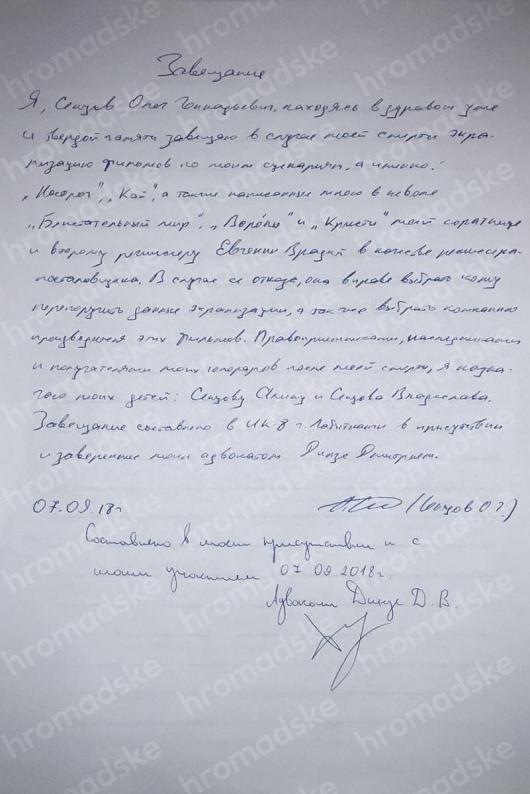 Завещание
Я, Сенцов Олег Геннадьевич, находясь в здравом уме
и твердой памяти завещаю в случае моей смерти экра-
низацию фильмов по моим сценариям, а именно:
„Носорог", „Кай", а также написанные мною в неволе
и второму режиссеру Евгении Врадий в качестве режиссера-
постановщика. В случае ее отказа, она вправе выбрать кому
перепоручить данные экранизации, а также выбрать компанию
производителя этих фильмов. Правоприемниками, наследниками
и получателями моих гонораров после моей смерти, я назна-
чаю моих детей: Сенцову Алину и Сенцова Владислава.
Завещание составлено в ИК-8 г. Лабытнанги в присутствии
и заверенное моим адвокатом Динзе Дмитрием.
07.09.18г (Сенцов О.Г.)
Составлено в моем присутствии и с
моим участием 07.09.2018г.
Адвокат Динзе Д.В.
hromadske